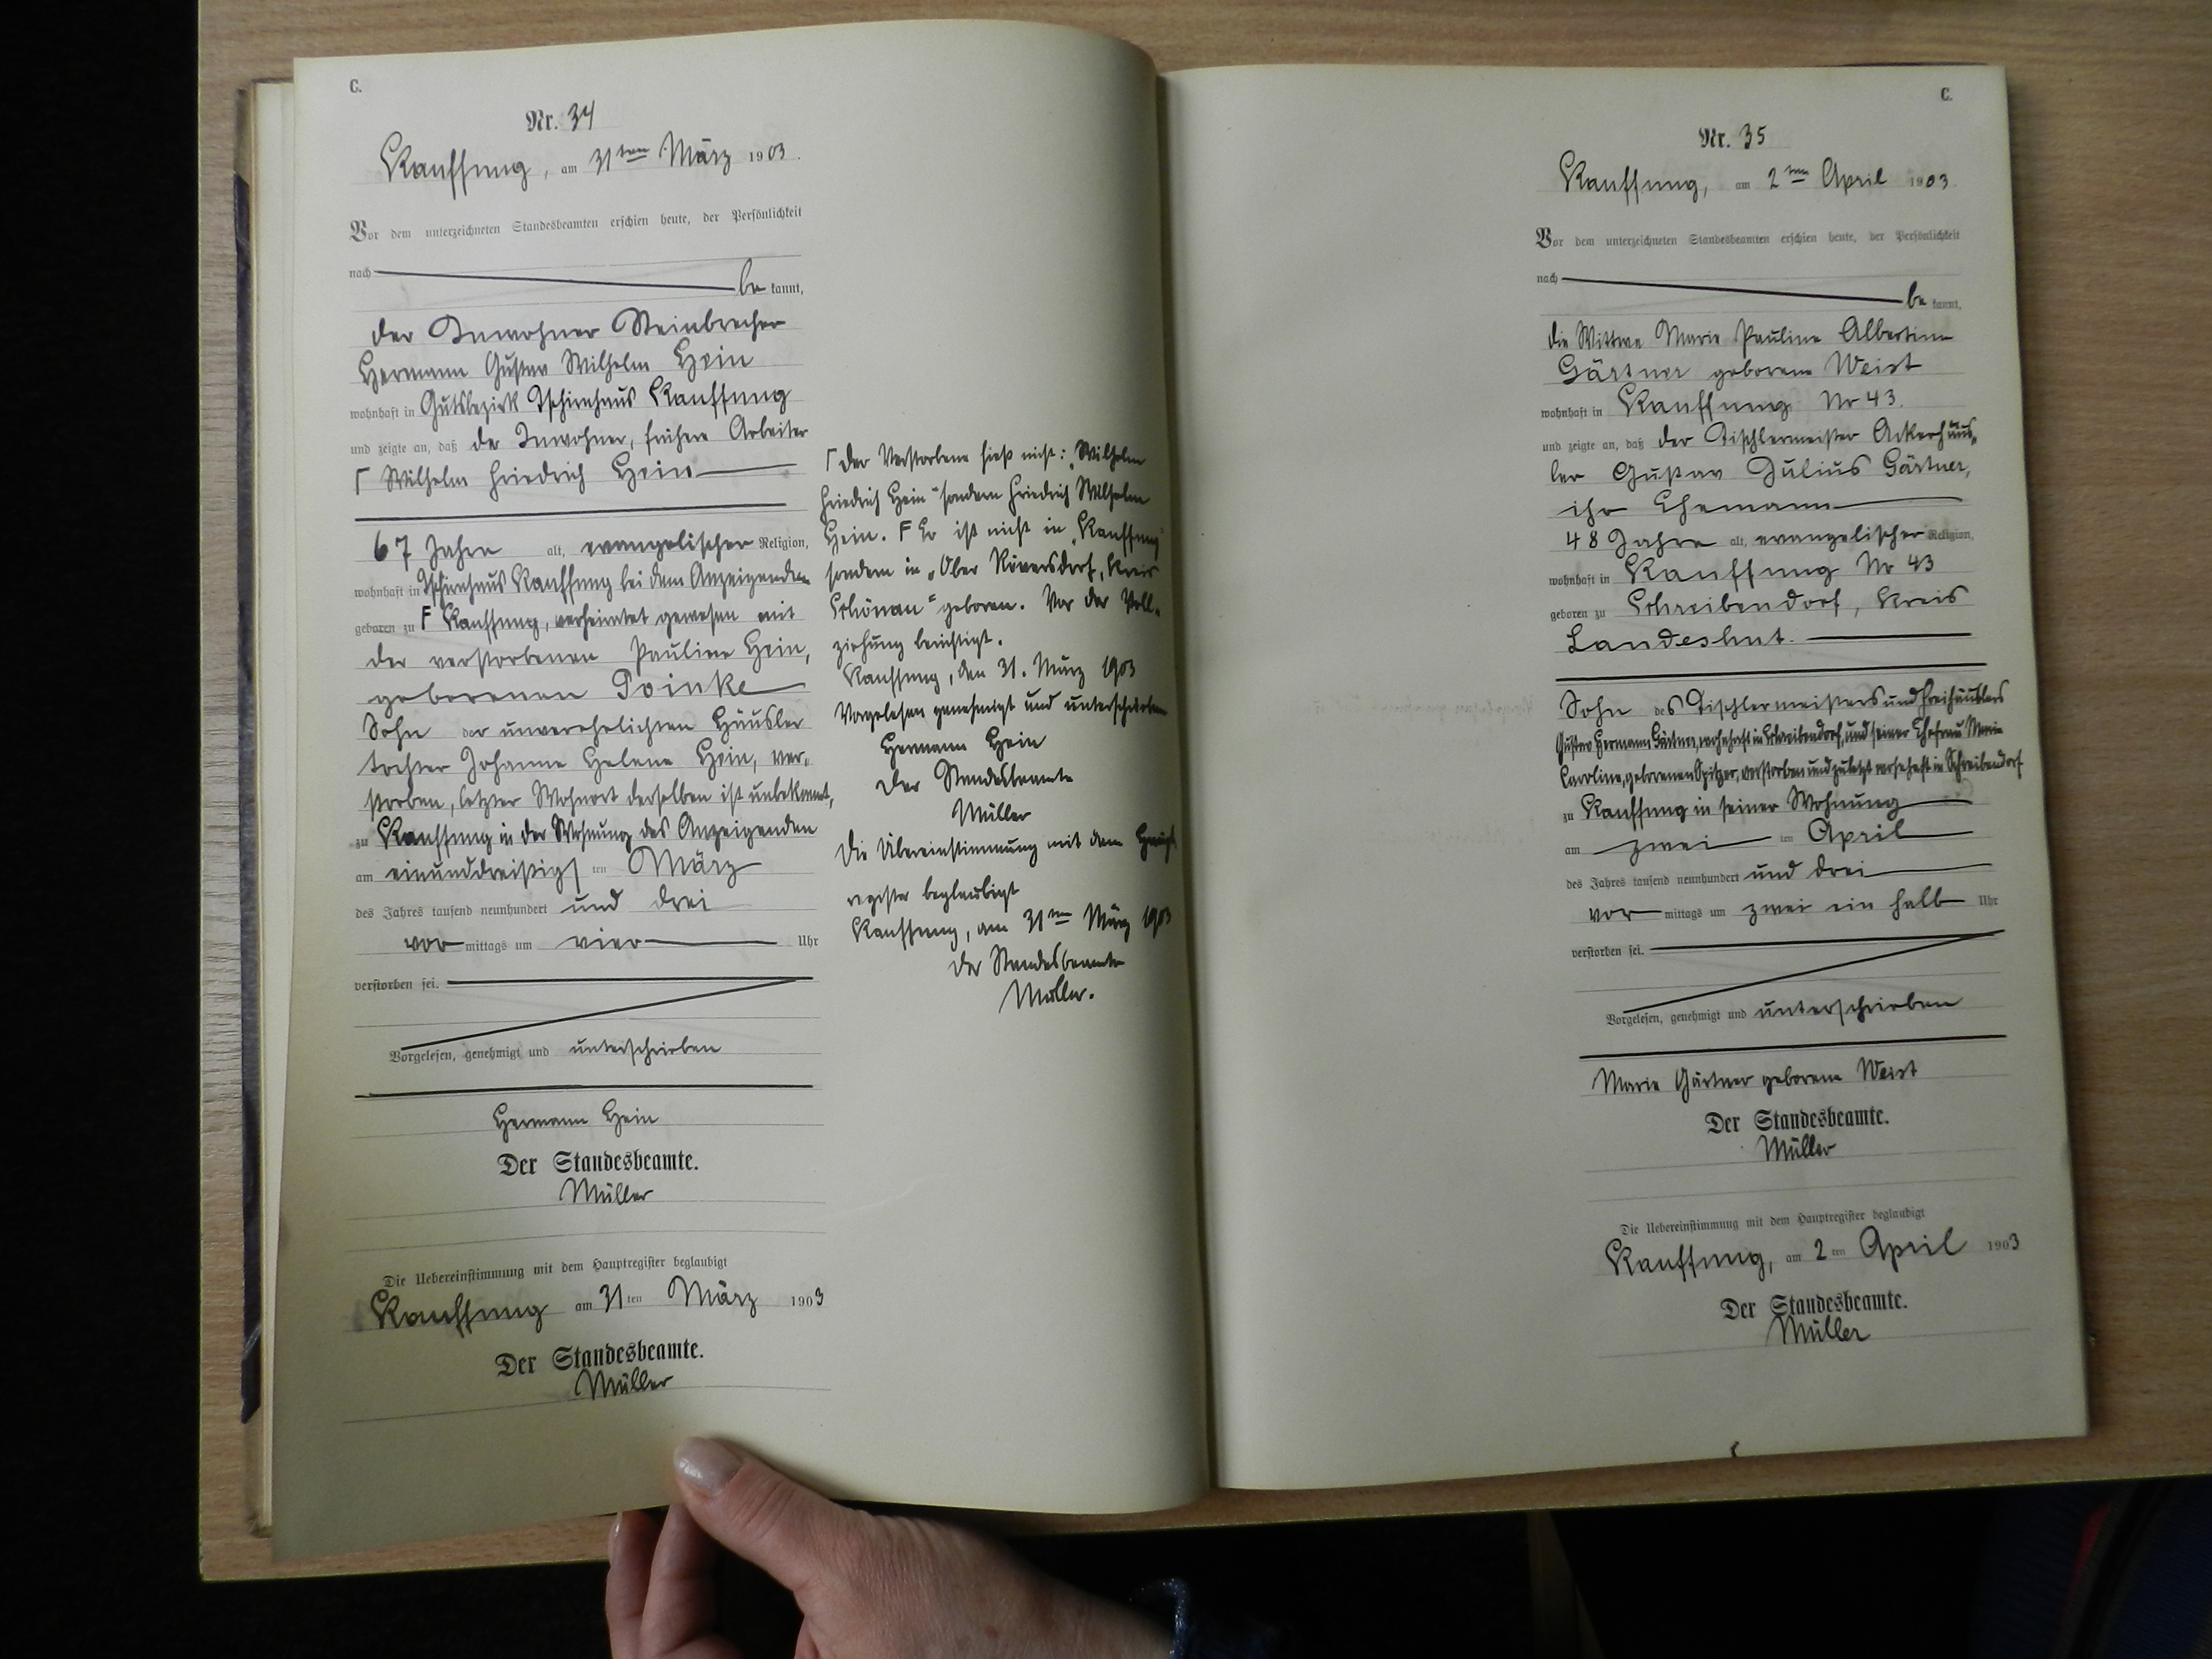 C.
Nr. 34
Kauffung, am 31ten März 1903.
Vor dem unterzeichneten Standesbeamten erschien heute, der Persönlichkeit
nach
be kannt,
der Inwohner Steinbrecher
Hermann Gustav Wilhelm Hein
wohnhaft in Gutsbezirk Tschirnhaus Kauffung
und zeigte an, daß der Inwohner, frühere Arbeiter
Γ Wilhelm Friedrich Hein
67 Jahre alt, evangelischer Religion,
wohnhaft in Tschirnhaus Kauffung bei dem Anzeigenden
geboren zu F Kauffung, verheiratet gewesen mit
der verstorbenen Pauline Hein,
geborenen Poinke
Sohn der unverehelichten Häusler
tochter Johanne Helene Hein, ver-
storben, letzter Wohnort derselben ist unbekannt,
zu Kauffung in der Wohnung des Anzeigenden
am einunddreißigs ten März
des Jahres tausend neunhundert und drei
vor mittags um vier Uhr
verstorben sei.
Vorgelesen, genehmigt und unterschrieben
Hermann Hein
Der Standesbeamte.
Müller
Die Uebereinstimmung mit dem Hauptregister beglaubigt
Kauffung am 31 ten März 1903
Der Standesbeamte.
Müller
Γ Der Verstorbene hieß nicht: „Wilhelm
Friedrich Hein" sondern Friedrich Wilhelm
Hein. F Er ist nicht in „Kauffung"
sondern in „Ober Röversdorf, Kreis
Schönau" geboren. Vor der Voll-
ziehung berichtigt.
Kauffung, den 31. März 1903
Vorgelesen genehmigt und unterschrieben
Hermann Hein
Der Standesbeamte
Müller
Die Übereinstimmung mit dem Haupt
register beglaubigt
Kauffung, am 31ten März 1903
Der Standesbeamte
Müller.
C.
Nr. 35
Kauffung, am 2ten April 1903.
Vor dem unterzeichneten Standesbeamten erschien heute, der Persönlichkeit
nach
be kannt,
die Wittwe Marie Pauline Albertine
Gärtner geborene Weist
wohnhaft in Kauffung Nr 43.
und zeigte an, daß der Tischlermeister Ackerhäus-
ler Gustav Julius Gärtner,
ihr Ehemann
48 Jahre alt, evangelischer Religion,
wohnhaft in Kauffung Nr 43
geboren zu Schreibendorf, Kreis
Landeshut.
Sohn des Tischlermeisters und Freihäuslers
Gustav Hermann Gärtner, wohnhaft in Schreibendorf, und seiner Ehefrau Marie
Caroline, geborenen Spitzer, verstorben und zuletzt wohnhaft in Schreibendorf
zu Kauffung in seiner Wohnung
am zwei ten April
des Jahres tausend neunhundert und drei
vor mittags um zwei ein halb Uhr
verstorben sei.
Vorgelesen, genehmigt und unterschrieben
Marie Gärtner geborene Weist
Der Standesbeamte.
Müller
Die Uebereinstimmung mit dem Hauptregister beglaubigt
Kauffung, am 2 ten April 1903
Der Standesbeamte.
Müller